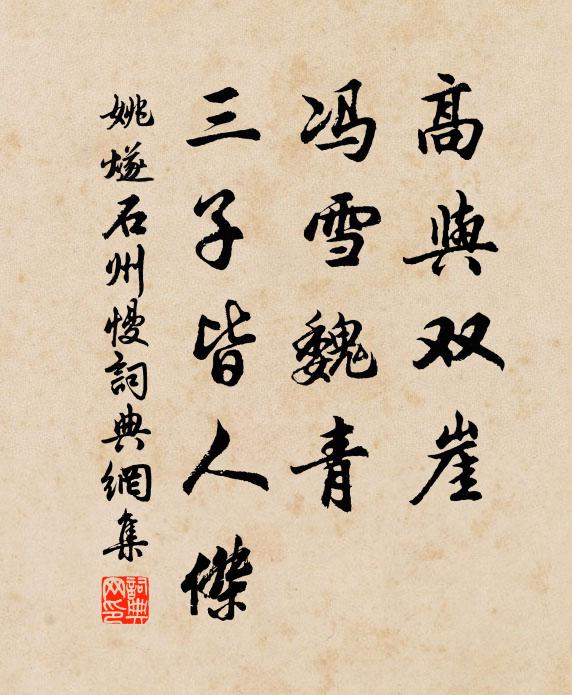 高與双崖
冯雪魏青
三子皆人傑
姚燧石州慢詞典網集
詞典网印